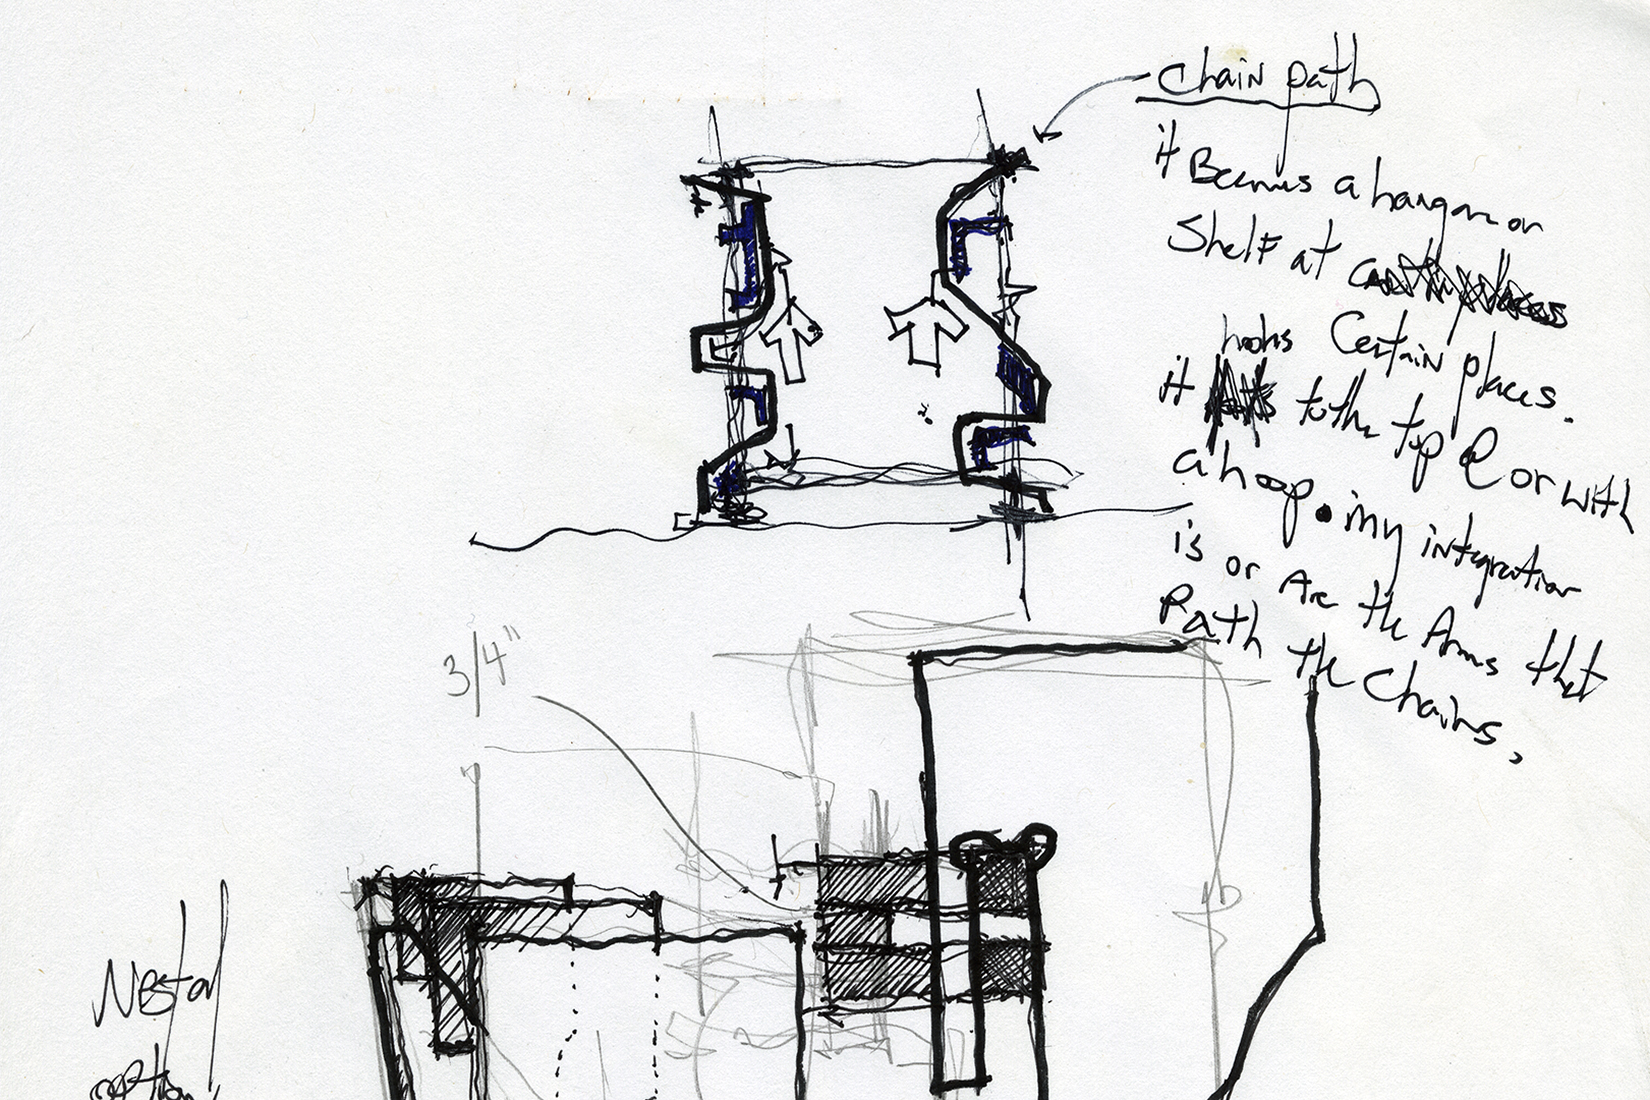 Chain path
it Becomes a hangar or
Shelf at
hooks Certain places.
it to the top or with
a hoop. my integration
is or Are the Arms that
Path the Chains.
3/4"
Nested
option